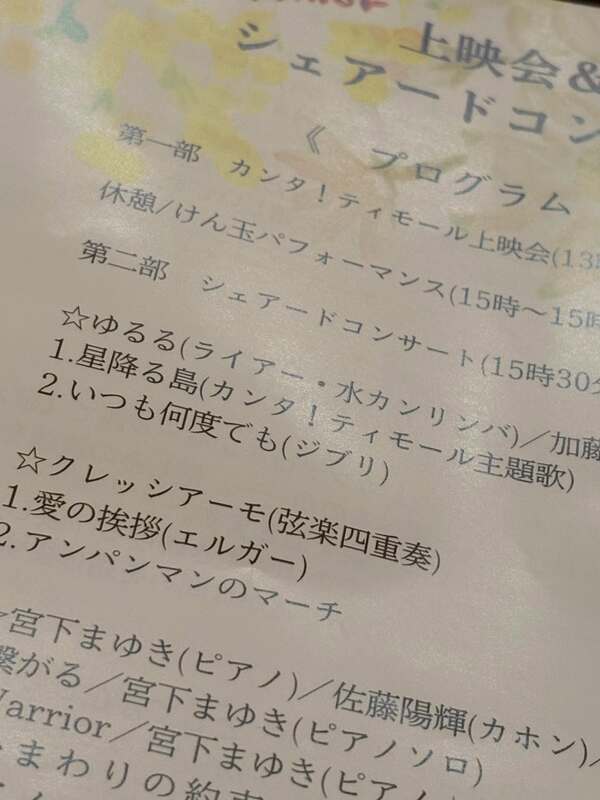 上映会&
シェアードコン
《 プログラム
第一部 カンタ！ティモール上映会(13時
休憩/けん玉パフォーマンス(15時～15時
第二部 シェアードコンサート(15時30分
☆ゆるる(ライアー・水カンリンバ)／加藤
1.星降る島(カンタ！ティモール主題歌)
2.いつも何度でも(ジブリ)
☆クレッシアーモ(弦楽四重奏)
1.愛の挨拶(エルガー)
2.アンパンマンのマーチ
宮下まゆき(ピアノ)／佐藤陽輝(カホン)／
繋がる／宮下まゆき(ピアノソロ)
Warrior／宮下まゆき(ピアノ
まわりの約束